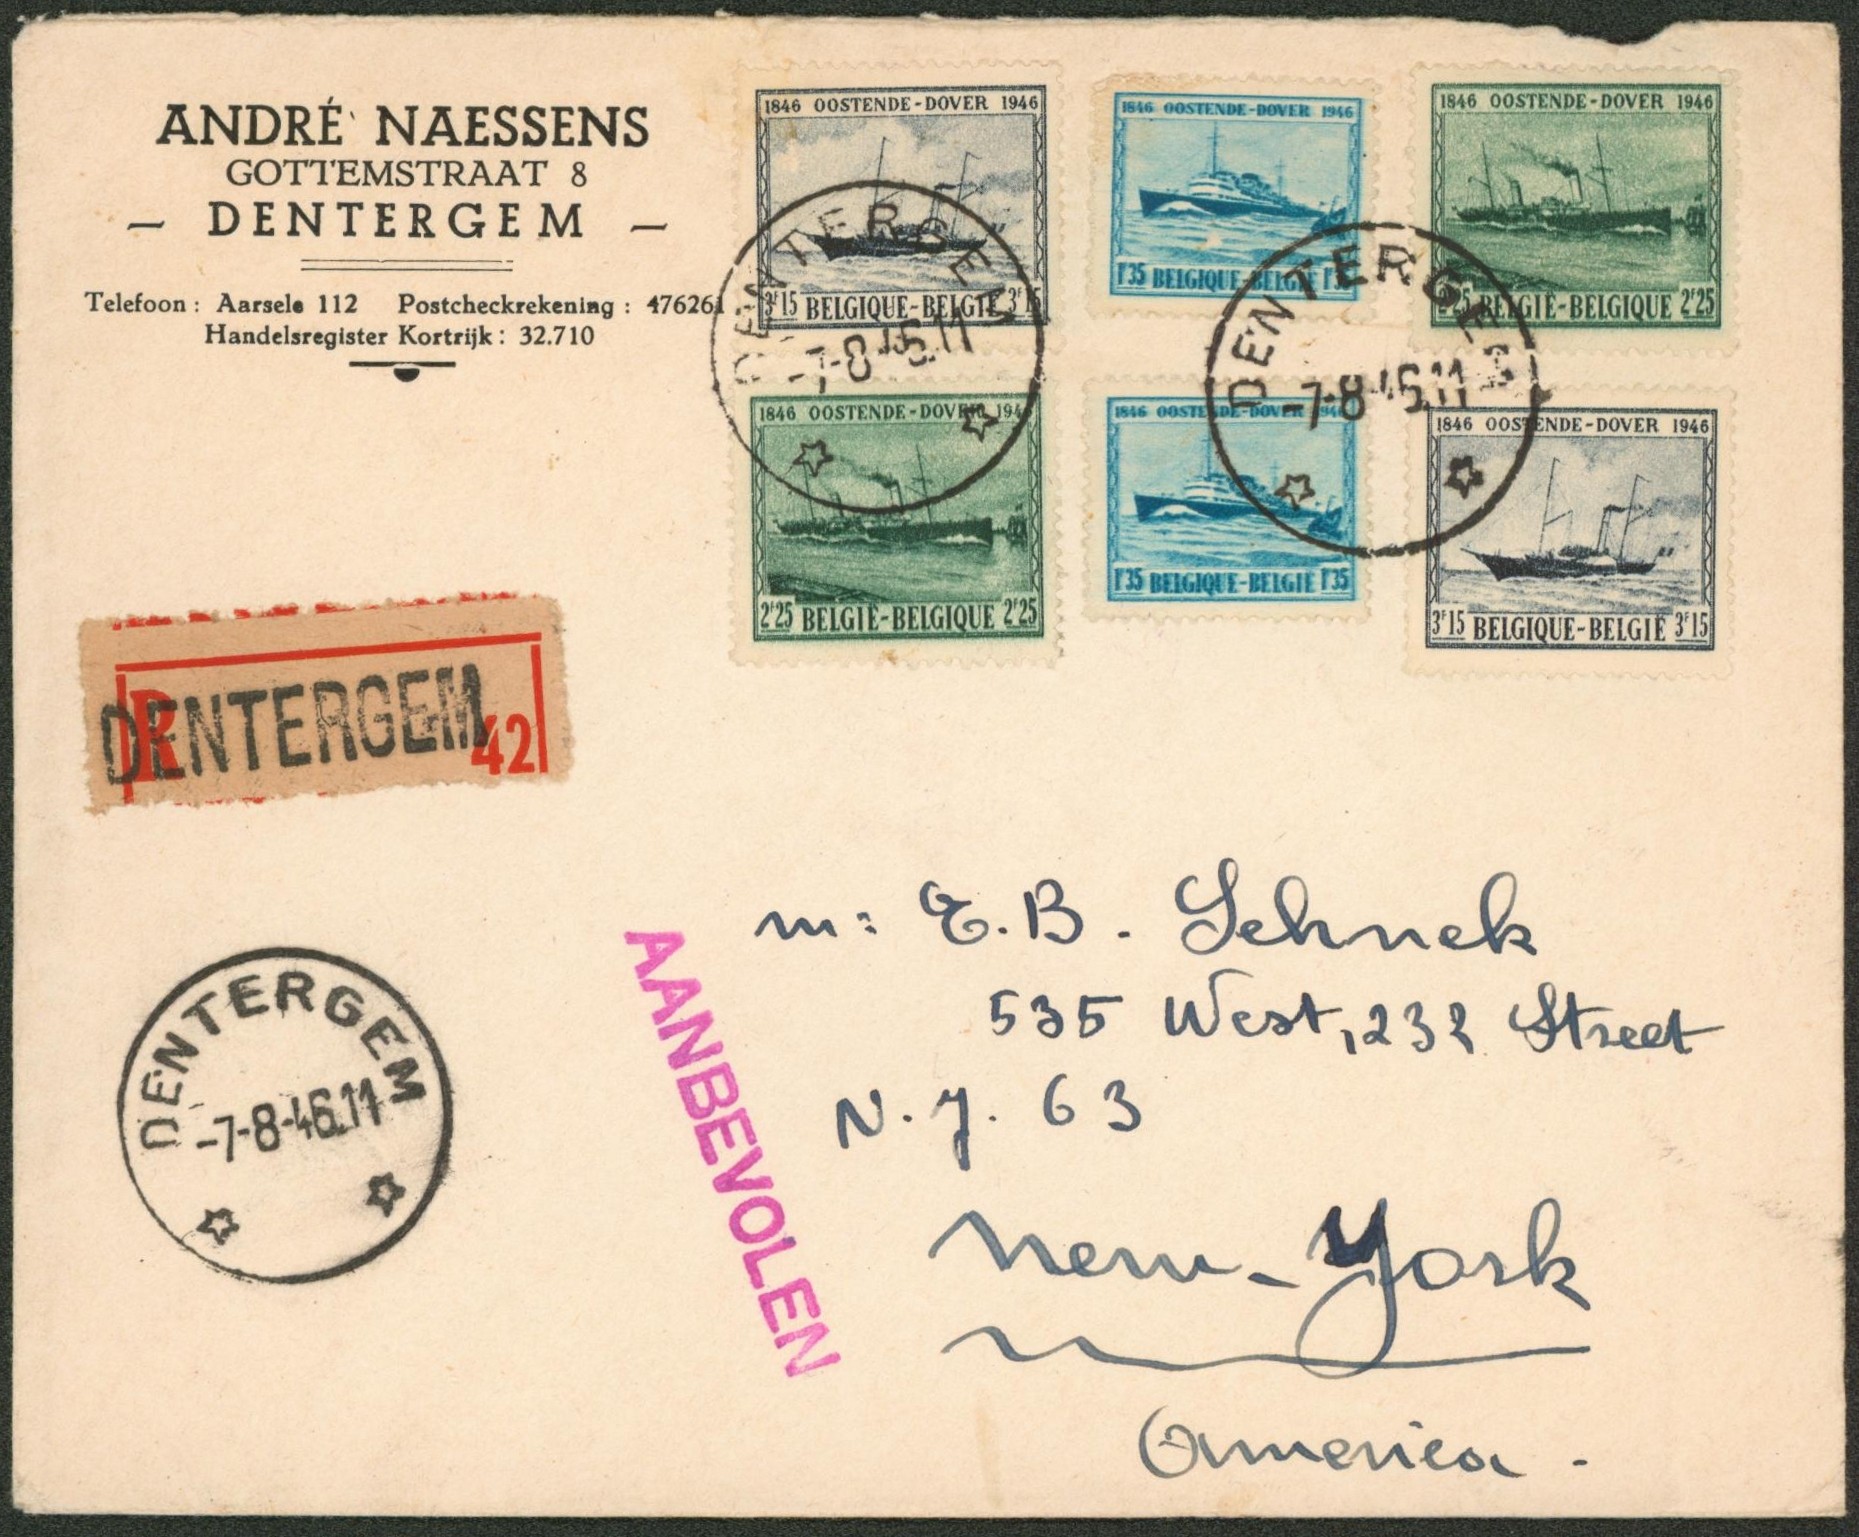 ANDRÉ NAESSENS
GOTTEMSTRAAT 8
- DENTERGEM -
Telefoon : Aarsele 112 Postcheckrekening : 476261
Handelsregister Kortrijk : 32.710
1846 OOSTENDE-DOVER 1946
3F15 BELGIQUE-BELGIË 3F15
1846 OOSTENDE-DOVER 1946
1F35 BELGIQUE-BELGIE 1F35
1846 OOSTENDE-DOVER 1946
2F25 BELGIË-BELGIQUE 2F25
DENTERGEM
-7-8-46.11
DENTERGEM
-7-8-46.11
1846 OOSTENDE-DOVER 1946
2F25 BELGIË-BELGIQUE 2F25
1846 OOSTENDE-DOVER 1946
1F35 BELGIQUE-BELGIE 1F35
1846 OOSTENDE-DOVER 1946
3F15 BELGIQUE-BELGIË 3F15
R DENTERGEM 42
DENTERGEM
-7-8-46.11
AANBEVOLEN
m: E.B. Schnek
535 West, 232 Street
N.Y. 63
New-York
America.